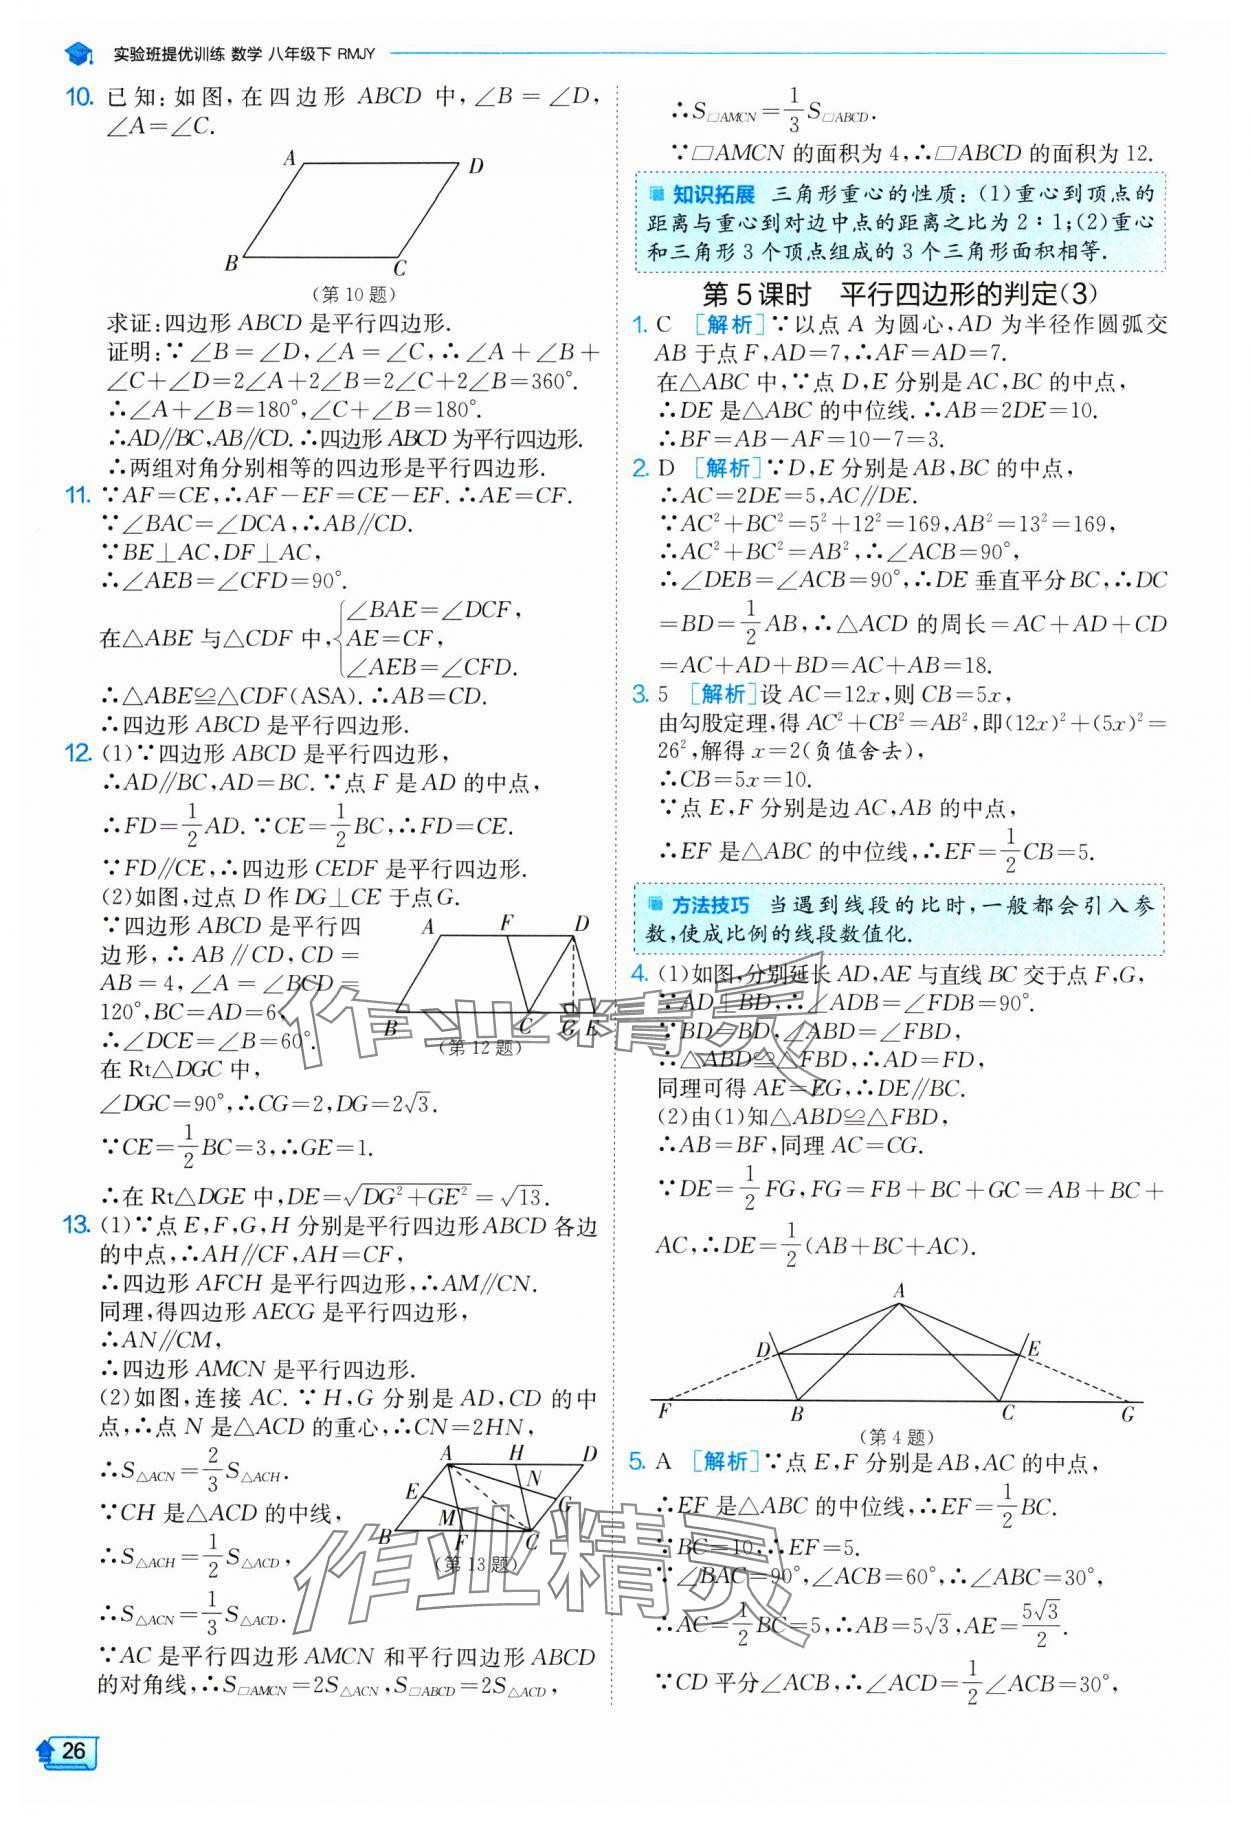 实验班提优训练 数学 八年级下 RMJY
10. 已知:如图,在四边形 ABCD 中,∠B=∠D,
∠A=∠C.
A
D
B
C
(第10题)
求证:四边形 ABCD 是平行四边形.
证明:∵∠B=∠D,∠A=∠C,∴∠A+∠B+
∠C+∠D=2∠A+2∠B=2∠C+2∠B=360°.
∴∠A+∠B=180°,∠C+∠B=180°.
∴AD∥BC,AB∥CD. ∴四边形 ABCD 为平行四边形.
∴两组对角分别相等的四边形是平行四边形.
11. ∵AF=CE,∴AF-EF=CE-EF. ∴AE=CF.
∵∠BAC=∠DCA,∴AB∥CD.
∵BE⊥AC,DF⊥AC,
∴∠AEB=∠CFD=90°.
在△ABE 与△CDF 中,{∠BAE=∠DCF,
AE=CF,
∠AEB=∠CFD.
∴△ABE≌△CDF(ASA). ∴AB=CD.
∴四边形 ABCD 是平行四边形.
12. (1)∵四边形 ABCD 是平行四边形,
∴AD∥BC,AD=BC. ∵点 F 是 AD 的中点,
∴FD=1/2AD. ∵CE=1/2BC,∴FD=CE.
∵FD∥CE,∴四边形 CEDF 是平行四边形.
(2)如图,过点 D 作 DG⊥CE 于点G.
∵四边形 ABCD 是平行四
边形,∴AB∥CD,CD=
AB=4,∠A=∠BCD=
120°,BC=AD=6,
∴∠DCE=∠B=60°.
A F D
B C G E
(第12题)
在 Rt△DGC 中,
∠DGC=90°,∴CG=2,DG=2√3.
∵CE=1/2BC=3,∴GE=1.
∴在 Rt△DGE 中,DE=√(DG²+GE²)=√13.
13. (1)∵点 E,F,G,H 分别是平行四边形 ABCD 各边
的中点,∴AH∥CF,AH=CF,
∴四边形 AFCH 是平行四边形,∴AM∥CN.
同理,得四边形 AECG 是平行四边形,
∴AN∥CM,
∴四边形 AMCN 是平行四边形.
(2)如图,连接 AC. ∵H,G 分别是 AD,CD 的中
点,∴点 N 是△ACD 的重心,∴CN=2HN,
∴S△ACN=2/3S△ACH.
∵CH 是△ACD 的中线,
∴S△ACH=1/2S△ACD,
∴S△ACN=1/3S△ACD.
A H D
N
E G
M
B F C
(第13题)
∵AC 是平行四边形 AMCN 和平行四边形 ABCD
的对角线,∴S□AMCN=2S△ACN,S□ABCD=2S△ACD,
26
∴S□AMCN=1/3S□ABCD.
∵□AMCN 的面积为 4,∴□ABCD 的面积为 12.
知识拓展 三角形重心的性质:(1)重心到顶点的
距离与重心到对边中点的距离之比为 2∶1;(2)重心
和三角形 3 个顶点组成的 3 个三角形面积相等.
第5课时 平行四边形的判定(3)
1. C [解析]∵以点 A 为圆心,AD 为半径作圆弧交
AB 于点 F,AD=7,∴AF=AD=7.
在△ABC 中,∵点 D,E 分别是 AC,BC 的中点,
∴DE 是△ABC 的中位线. ∴AB=2DE=10.
∴BF=AB-AF=10-7=3.
2. D [解析]∵D,E 分别是 AB,BC 的中点,
∴AC=2DE=5,AC∥DE.
∵AC²+BC²=5²+12²=169,AB²=13²=169,
∴AC²+BC²=AB²,∴∠ACB=90°,
∴∠DEB=∠ACB=90°,∴DE 垂直平分 BC,∴DC
=BD=1/2AB,∴△ACD 的周长=AC+AD+CD
=AC+AD+BD=AC+AB=18.
3. 5 [解析]设 AC=12x,则 CB=5x,
由勾股定理,得 AC²+CB²=AB²,即(12x)²+(5x)²=
26²,解得 x=2(负值舍去),
∴CB=5x=10.
∵点 E,F 分别是边 AC,AB 的中点,
∴EF 是△ABC 的中位线,∴EF=1/2CB=5.
方法技巧 当遇到线段的比时,一般都会引入参
数,使成比例的线段数值化.
4. (1)如图,分别延长 AD,AE 与直线 BC 交于点 F,G,
∵AD⊥BD,∴∠ADB=∠FDB=90°.
∵BD=BD,∠ABD=∠FBD,
∴△ABD≌△FBD,∴AD=FD,
同理可得 AE=EG,∴DE∥BC.
(2)由(1)知△ABD≌△FBD,
∴AB=BF,同理 AC=CG.
∵DE=1/2FG,FG=FB+BC+GC=AB+BC+
AC,∴DE=1/2(AB+BC+AC).
A
D E
F B C G
(第4题)
5. A [解析]∵点 E,F 分别是 AB,AC 的中点,
∴EF 是△ABC 的中位线,∴EF=1/2BC.
∵BC=10,∴EF=5.
∵∠BAC=90°,∠ACB=60°,∴∠ABC=30°,
∴AC=1/2BC=5,∴AB=5√3,AE=5√3/2.
∵CD 平分∠ACB,∴∠ACD=1/2∠ACB=30°,
作业精灵
作业精灵